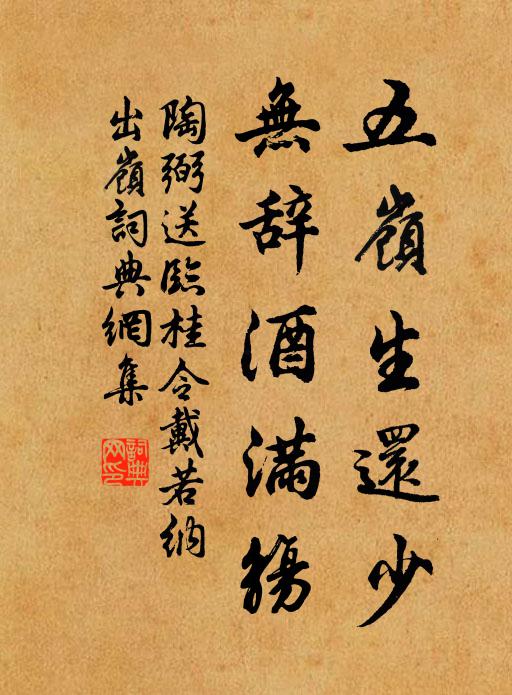 五嶺生還少
無辞酒滿觴
陶弼送臨桂令戴若納
出嶺詞典網集
詞典
网印